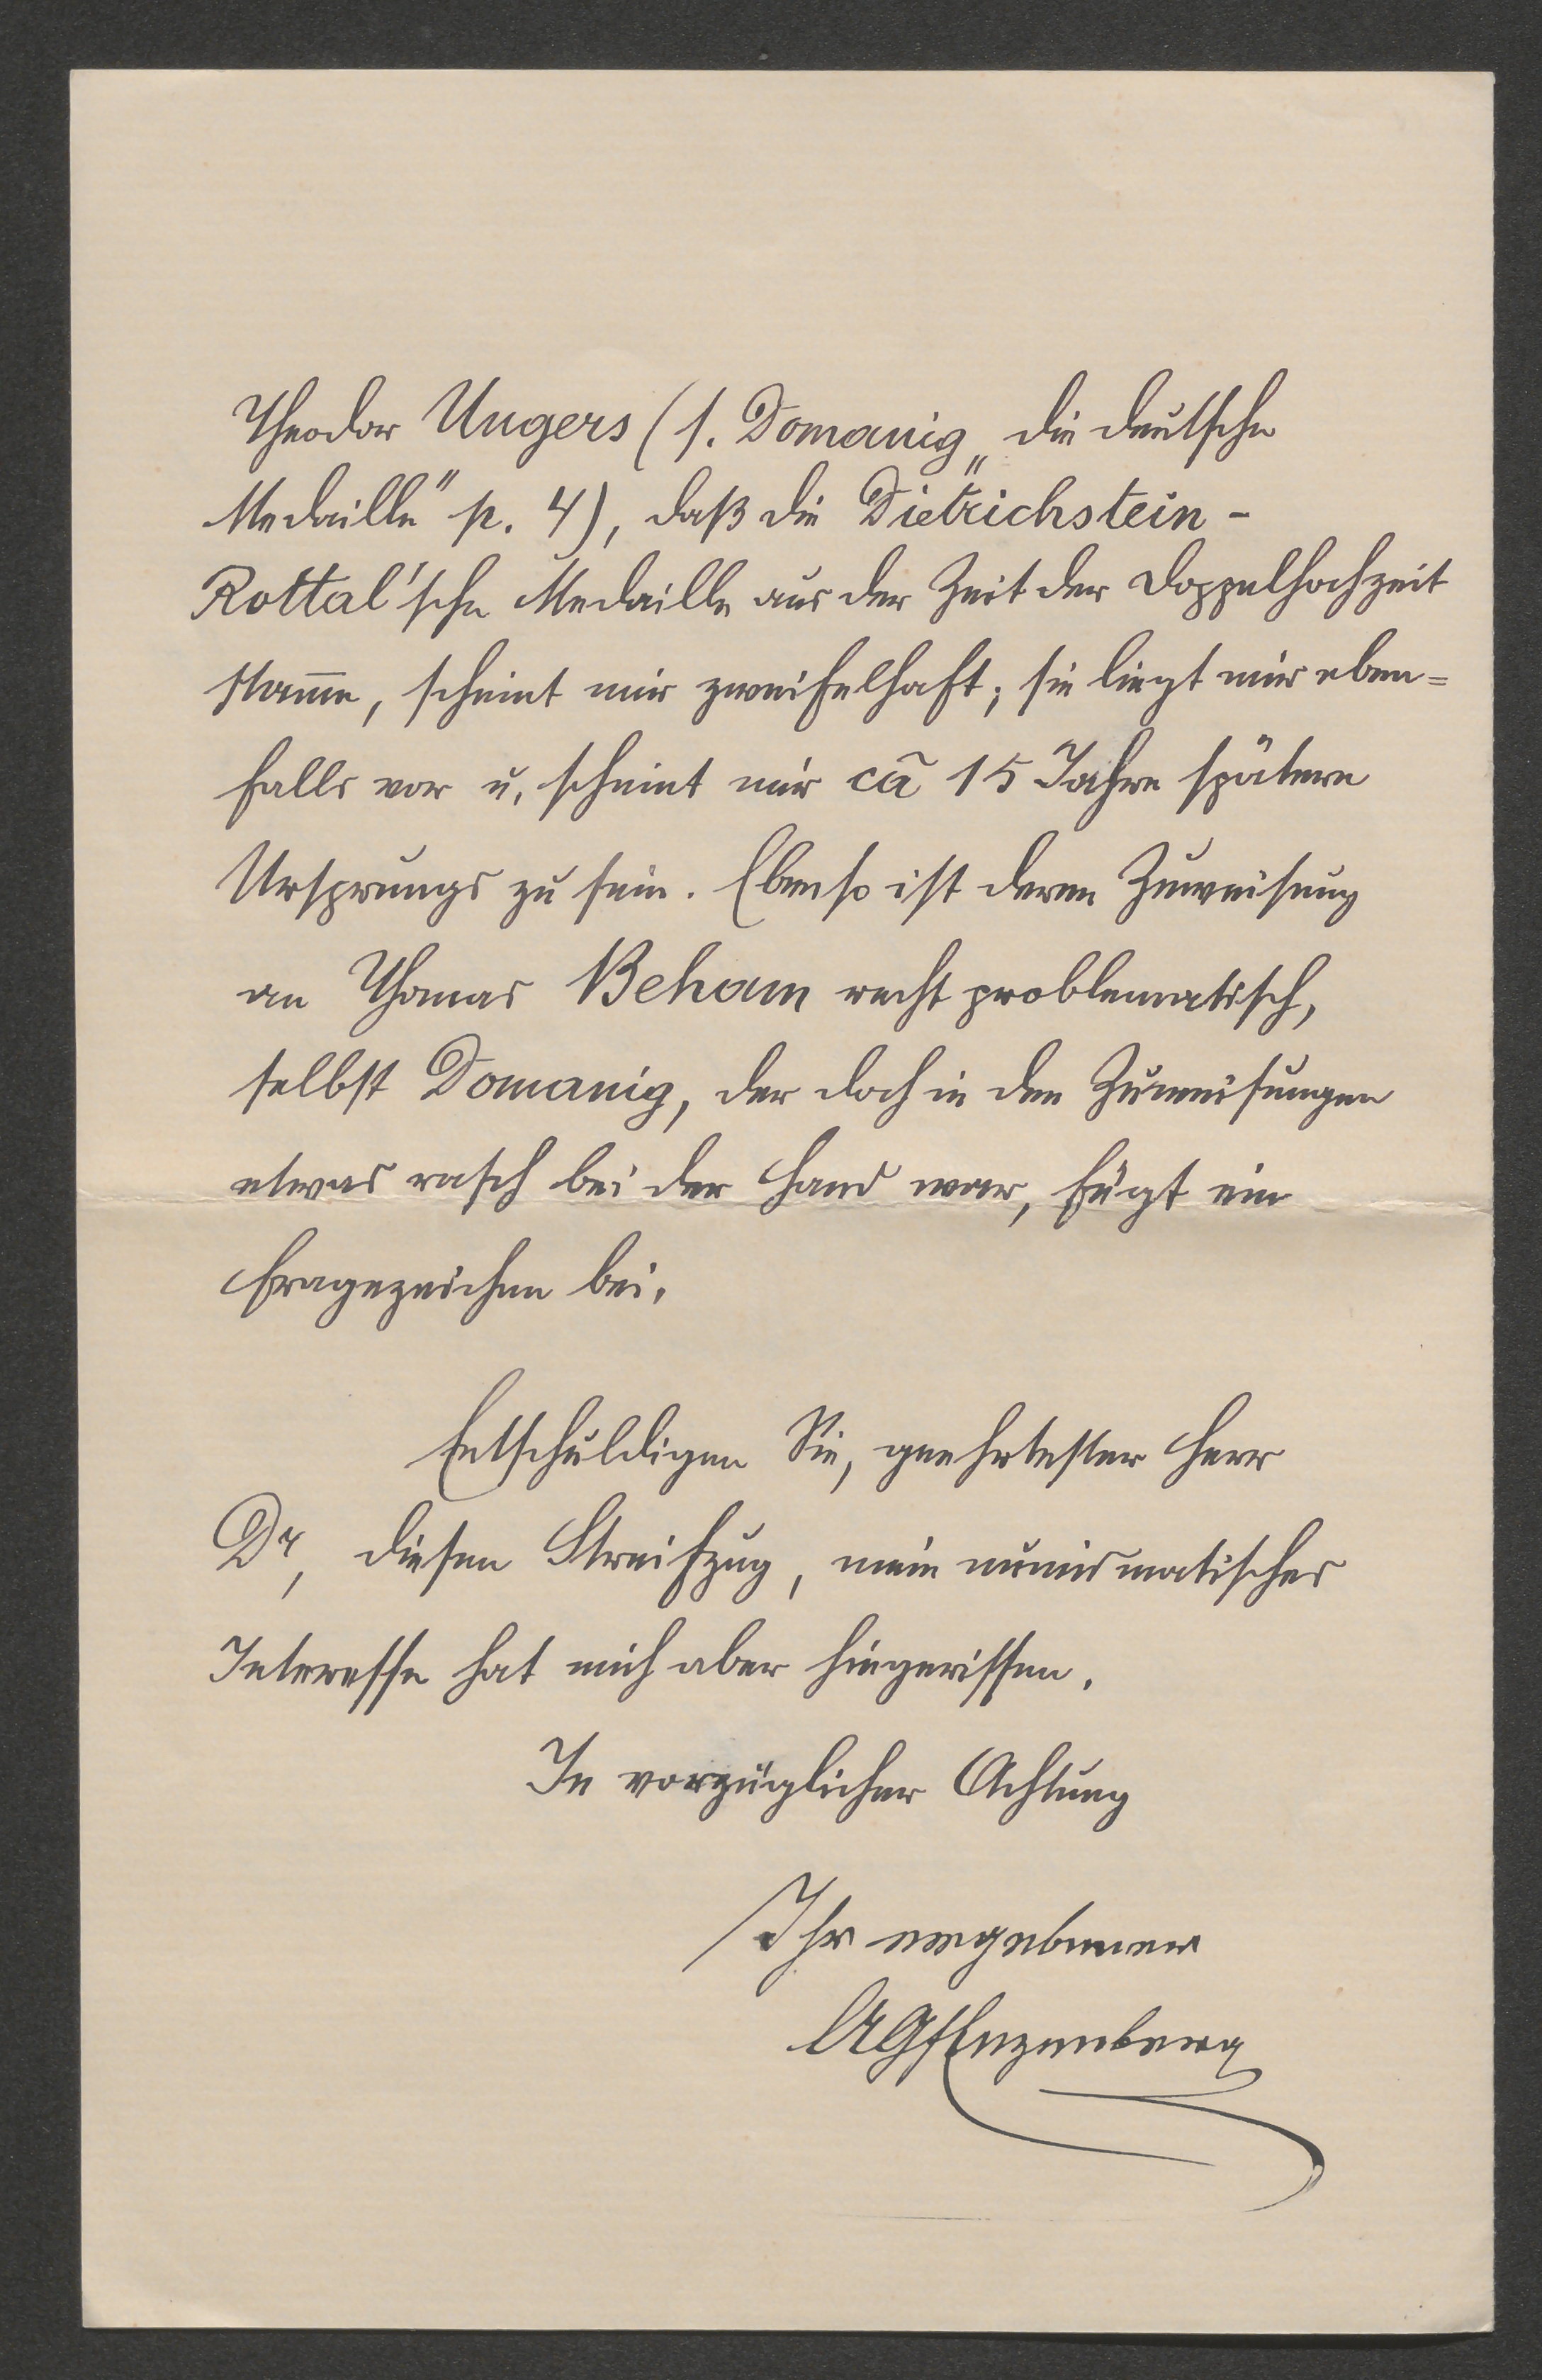 Theodor Ungers (s. Domanig „die deutsche
Medaille" p. 4), daß die Dietrichstein-
Rottal'sche Medaille aus der Zeit der Doppelhochzeit
stam̅e, scheint mir zweifelhaft; sie liegt mir eben=
falls vor u. scheint mir cã 15 Jahre spätern
Ursprungs zu sein. Ebenso ist deren Zuweisung
an Thomas Beham recht problematisch,
selbst Domanig, der doch in den Zuweisungen
etwas rasch bei der Hand war, fügt ein
Fragezeichen bei.
Entschuldigen Sie, geehrtester Herr
Dr, diesen Streifzug, mein numismatisches
Interesse hat mich aber hingerissen.
In vorzüglicher Achtung
Ihr ergebener
AGfEnzenberg